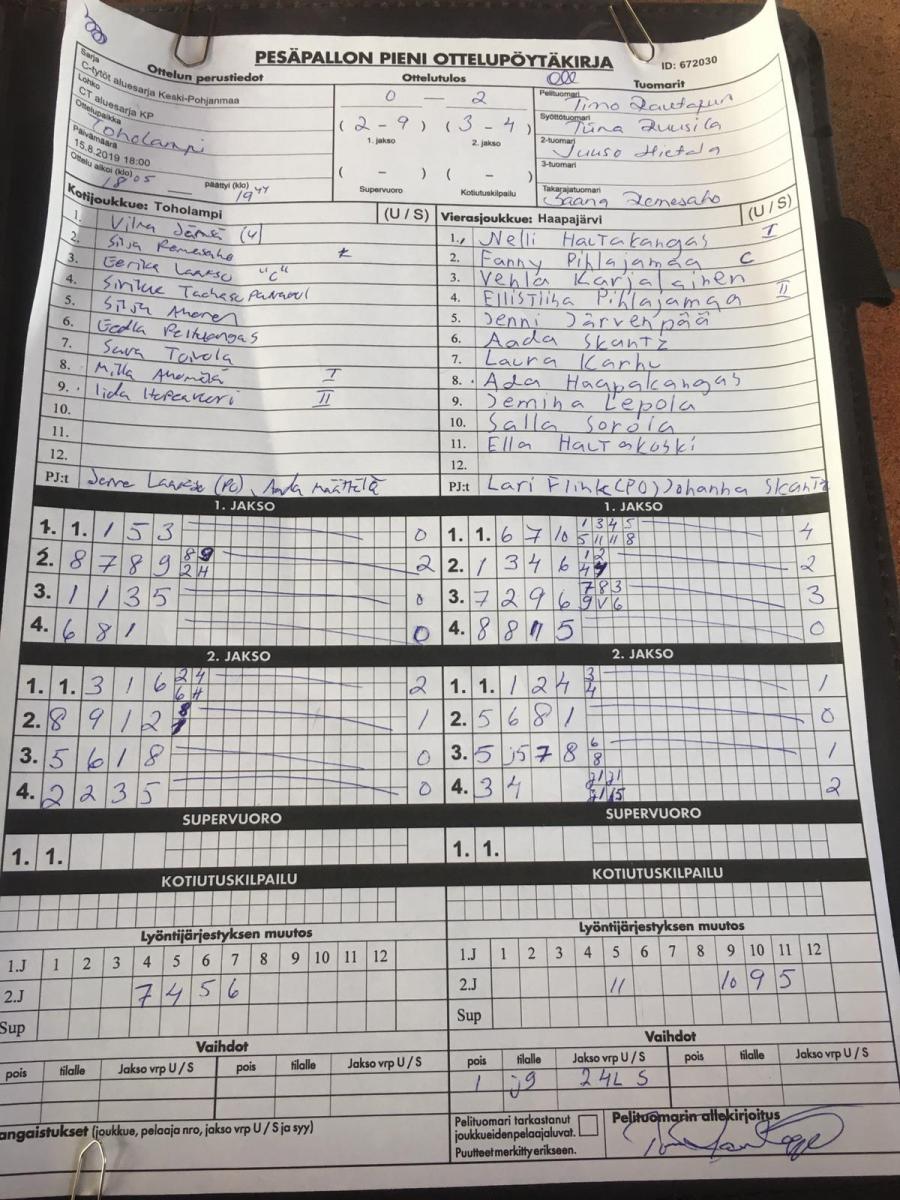 PESÄPALLON PIENI OTTELUPÖYTÄKIRJA
ID: 672030
Ottelun perustiedot
Sarja
C-tytöt aluesarja Keski-Pohjanmaa
Lohko
CT aluesarja KP
Ottelupaikka
Toholampi
Päivämäärä
15.8.2019 18:00
Ottelu alkoi (klo) 18 05 — päättyi (klo) 19 47
Ottelutulos
0 — 2
(2 - 9) (3 - 4)
1. jakso 2. jakso
( - ) ( - )
Supervuoro Kotiutuskilpailu
Tuomarit
Pelituomari
Timo
Syöttötuomari
Tiina
2-tuomari
Juuso Hietala
3-tuomari
Takarajatuomari
Saana Remesaho
Kotijoukkue: Toholampi (U / S)
1. Vilma Jämsä (4)
2. Silja Remesaho
3. Eerika Laakso "C"
4.
5. Silja
6. Eedla
7. Sara Toivola
8. Milla I
9. Iida II
10.
11.
12.
PJ:t Laakso (PO), Määttälä
Vierasjoukkue: Haapajärvi (U / S)
1. Nelli Hautakangas I
2. Fanny Pihlajamaa C
3. Venla Karjalainen
4. Ellistiina Pihlajamaa II
5. Jenni Järvenpää
6. Aada Skantz
7. Laura Karhu
8. Ada Haapakangas
9. Jemina Lepola
10. Salla Soroia
11. Ella Hautakoski
12.
PJ:t Lari Flink (PO) Johanna Skantz
1. JAKSO
1. 1. 1 5 3 0
2. 8 7 8 9 8 9 2 H 2
3. 1 1 3 5 0
4. 6 8 1 0
1. JAKSO
1. 1. 6 7 10 1 3 4 5 5 11 11 8 4
2. 1 3 4 6 1 2 4 2
3. 7 2 9 6 7 8 3 9 V 6 3
4. 8 8 11 5 0
2. JAKSO
1. 1. 3 1 6 2 4 6 H 2
2. 8 9 1 2 8 1
3. 5 6 1 8 0
4. 2 2 3 5 0
2. JAKSO
1. 1. 1 2 4 3 4 1
2. 5 6 8 1 0
3. 5 j5 7 8 6 8 1
4. 3 4 2
SUPERVUORO
1. 1.
SUPERVUORO
1. 1.
KOTIUTUSKILPAILU
KOTIUTUSKILPAILU
Lyöntijärjestyksen muutos
1.J 1 2 3 4 5 6 7 8 9 10 11 12
2.J 7 4 5 6
Sup
Lyöntijärjestyksen muutos
1.J 1 2 3 4 5 6 7 8 9 10 11 12
2.J 11 10 9 5
Sup
Vaihdot
pois tilalle Jakso vrp U / S pois tilalle Jakso vrp U / S
Vaihdot
pois tilalle Jakso vrp U / S pois tilalle Jakso vrp U / S
1 j9 24L S
angaistukset (joukkue, pelaaja nro, jakso vrp U / S ja syy)
Pelituomari tarkastanut
joukkueidenpelaajaluvat.
Puutteet merkitty erikseen.
Pelituomarin allekirjoitus